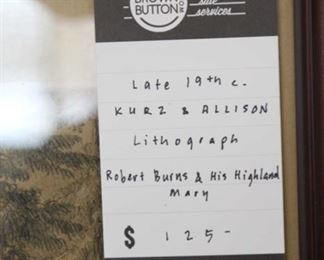 BROWN
BUTTON
.COM
services
Late 19th c.
KURZ & ALLISON
Lithograph
Robert Burns & His Highland
Mary
$ 125-